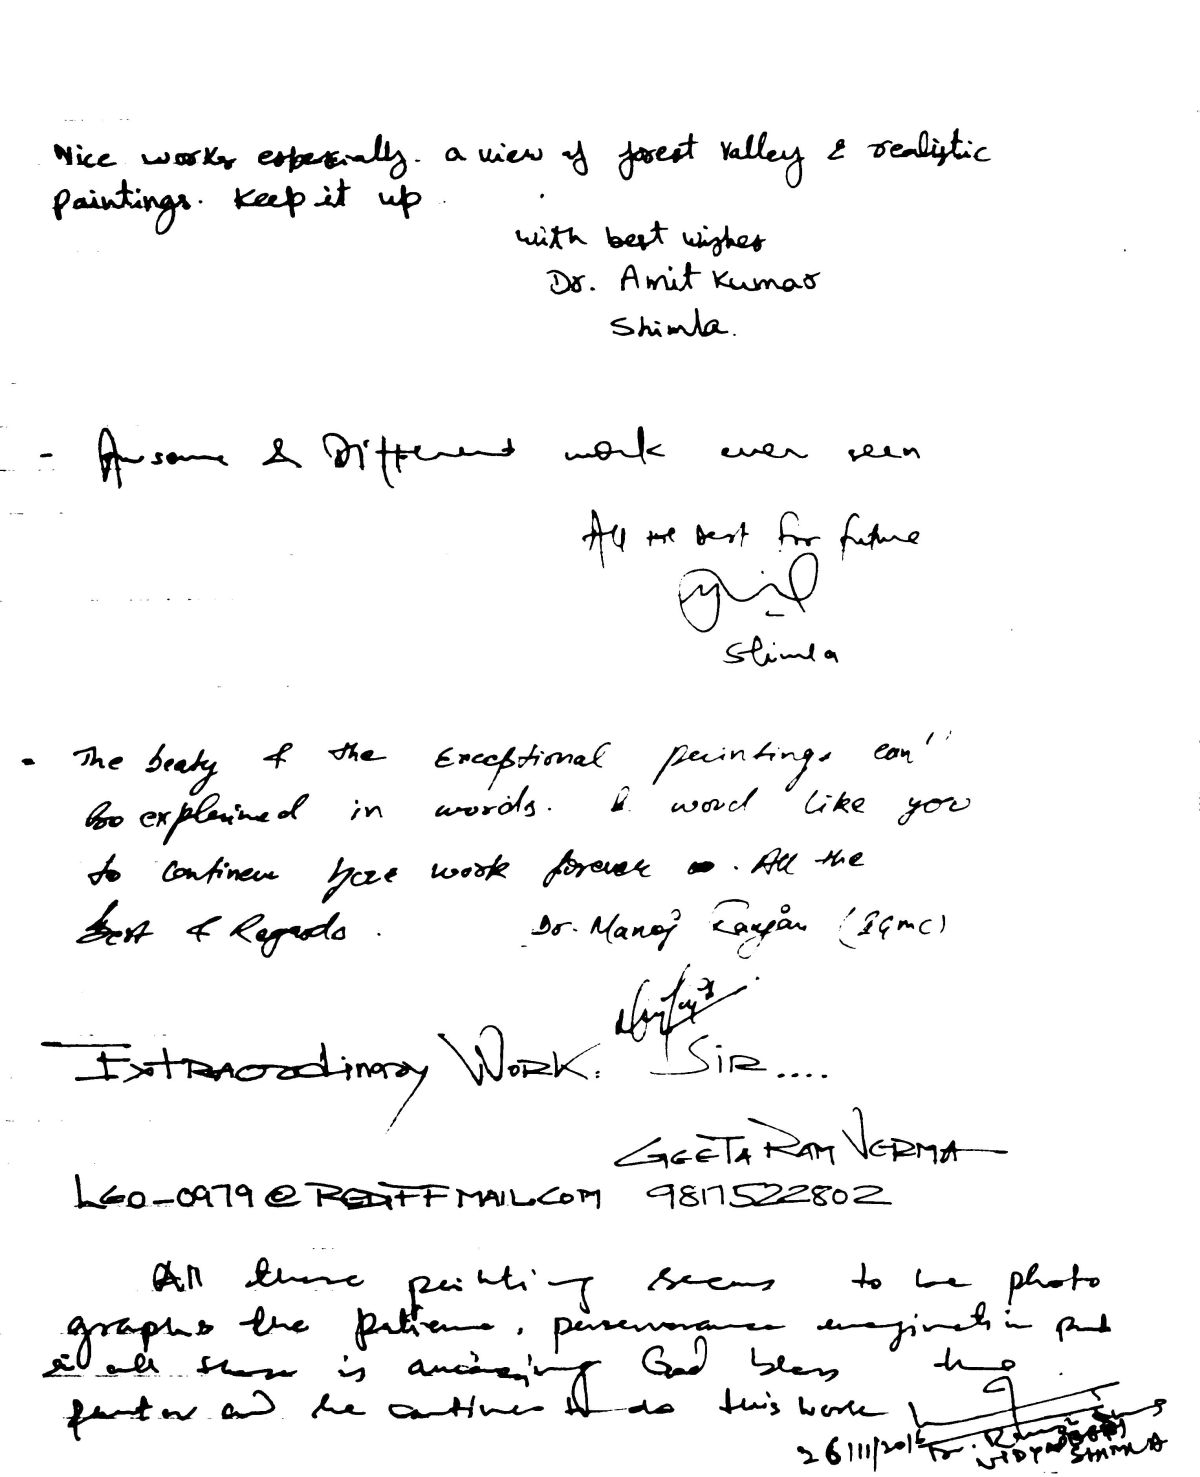 Nice works especially. a view of forest valley & realistic
paintings. Keep it up
with best wishes
Dr. Amit Kumar
Shimla.
- Awsome & Different work ever seen
All the best for future
Shimla
- The beaty & the Exceptional paintings can''
be explained in words. I woud like you
to continew your work forever. All the
best & Regards. Dr. Manoj Ranjan (IGMC)
Extraordinary Work. Sir....
Geeta Ram Verma
LEO-0979@REDIFFMAIL.COM 9817522802
All these painting seems to be photo
graphs the patience, perserverance imagination put
in all these is amazing God bless the
painter and he continues to do this work
26/11/2015 Dr.
SHIMLA